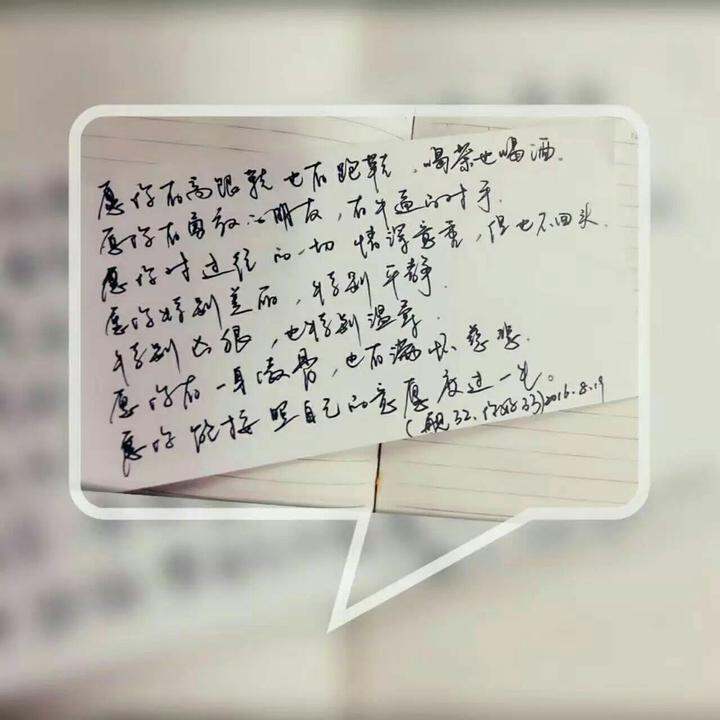 愿你有高跟鞋也有跑鞋，喝茶也喝酒.
愿你有勇敢的朋友，有牛逼的对手.
愿你对过往的一切情深意重，但也不回头.
愿你特别美丽，特别平静.
特别凶狠，也特别温柔.
愿你有一身傲骨，也有满怀慈悲.
愿你能按照自己的意愿度过一生。
(32、你好33)2016.8.19